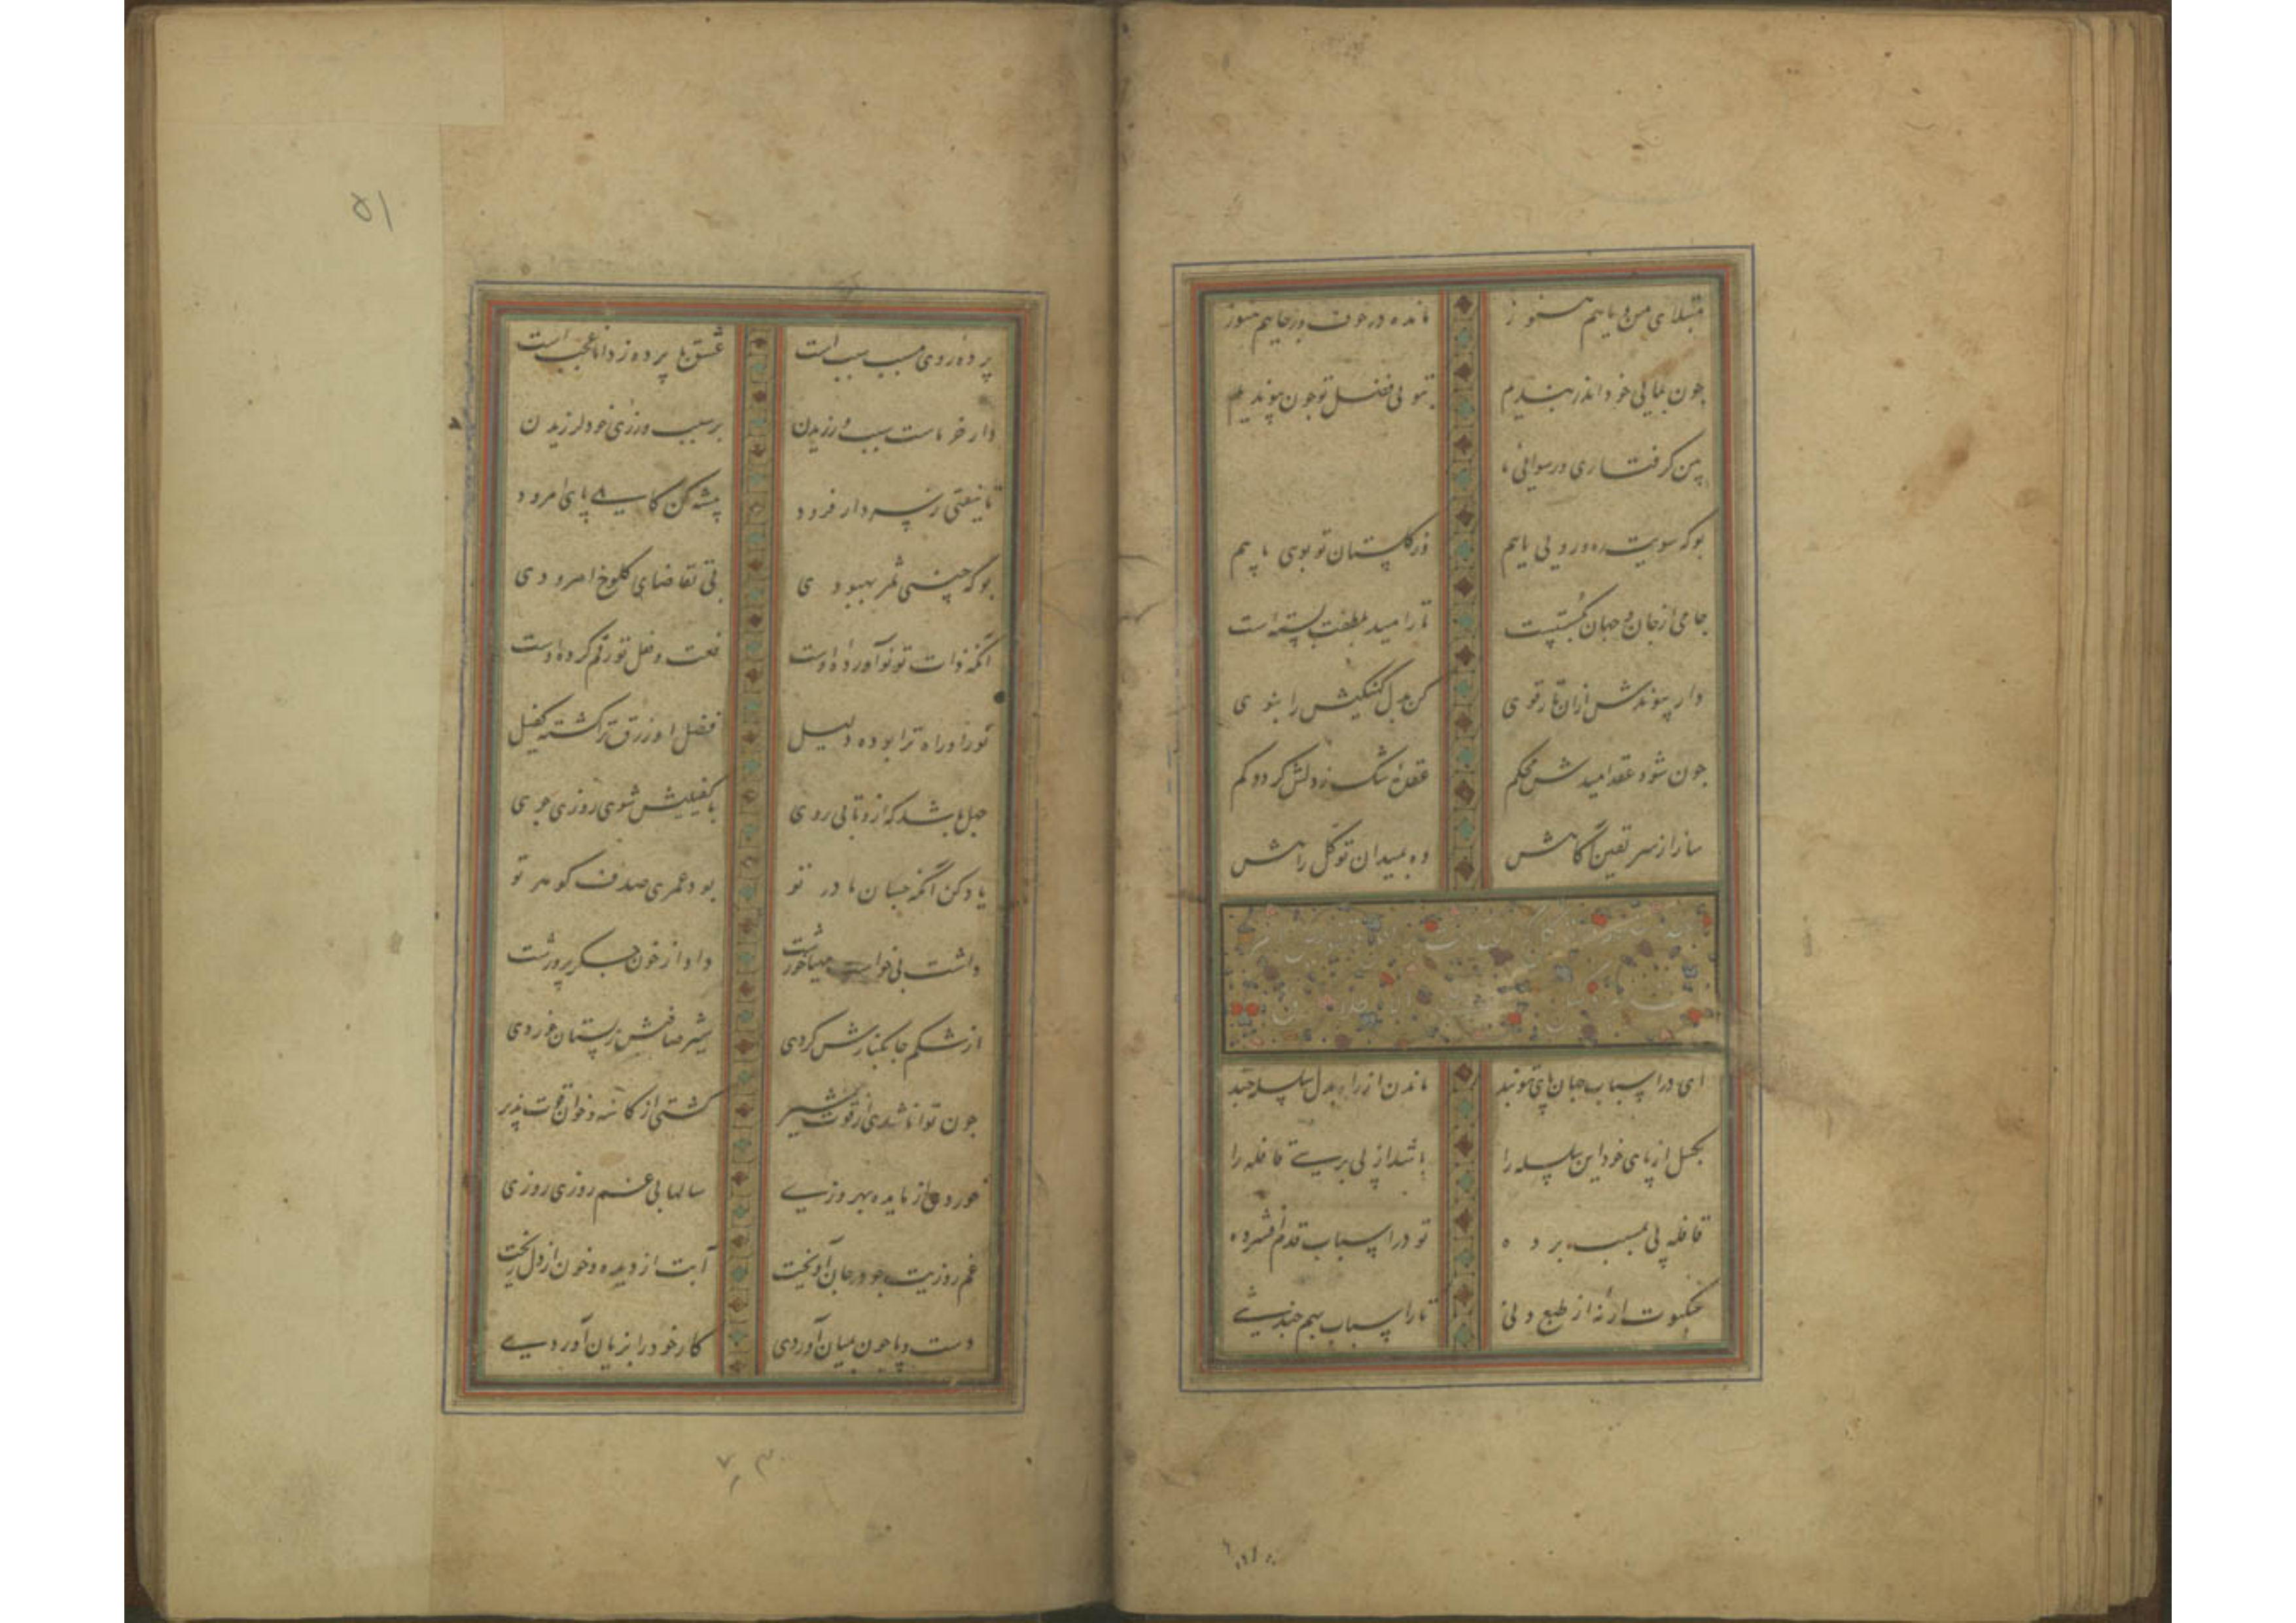 مبتلای من و ماییم هنوز مانده در خوف و رجاییم هنوز
چون بمایی خود اندر بندیم بتو بی فضل تو چون پیوندیم
من گرفتاری و رسوایی
بو که سویت ره و رویی یابیم وز گلستان تو بویی یابیم
جامی از جان و جهان بگسستست تا در امید بلطفت بسته است
دار پیوندش ازان تار قوی کن بدل کهنگیش را بنوی
چون شود عقد امیدش محکم عقده شک ز دلش گردد کم
ساز از سر یقین آگاهش ده بمیدان توکل راهش
ای در اسباب جهان پای تو بند ماندن از راه بدل سلسله چند
بگسل از پای خود این سلسله را باشد از پی برسی قافله را
قافله پی بمسبب برده تو در اسباب قدم افشرده
عنکبوت ار نه از طبع دنی تار اسباب بهم چند تنی
پرده روی مسبب سبب است عشق با پرده ز دانا عجب است
دار خر ماست سبب ورزیدن بر سبب ورزی خود لرزیدن
تا نیفتی ز سر دار فرود پیشه کن کاسه پای امرود
بو که چینی ثمر بهبودی بی تقاضای کلوخ امرودی
آنکه ذات تو نوآورده اوست نعت و فعل تو رقم کرده اوست
نور او راه ترا بوده دلیل فضل او رزق ترا گشته کفیل
جهل باشد که ازو تابی روی با کفیلیش شوی روزی جوی
یاد کن آنکه چسان مادر تو بود عمری صدف گوهر تو
داشت بی خواست مهیا خورشت داد از خون جگر پرورشت
از شکم جا بکنارش کردی شیر صافیش ز پستان خوردی
چون توانا شدی از قوت شیر گشتی از کاسه و خوان قوت پذیر
خوردی از مایده بهروزی سالها بی غم روزی روزی
غم روزیت چو در جان آویخت آبت از دیده و خون از دل ریخت
دست و پا چون بمیان آوردی کار خود را بزیان آوردی
۵۱